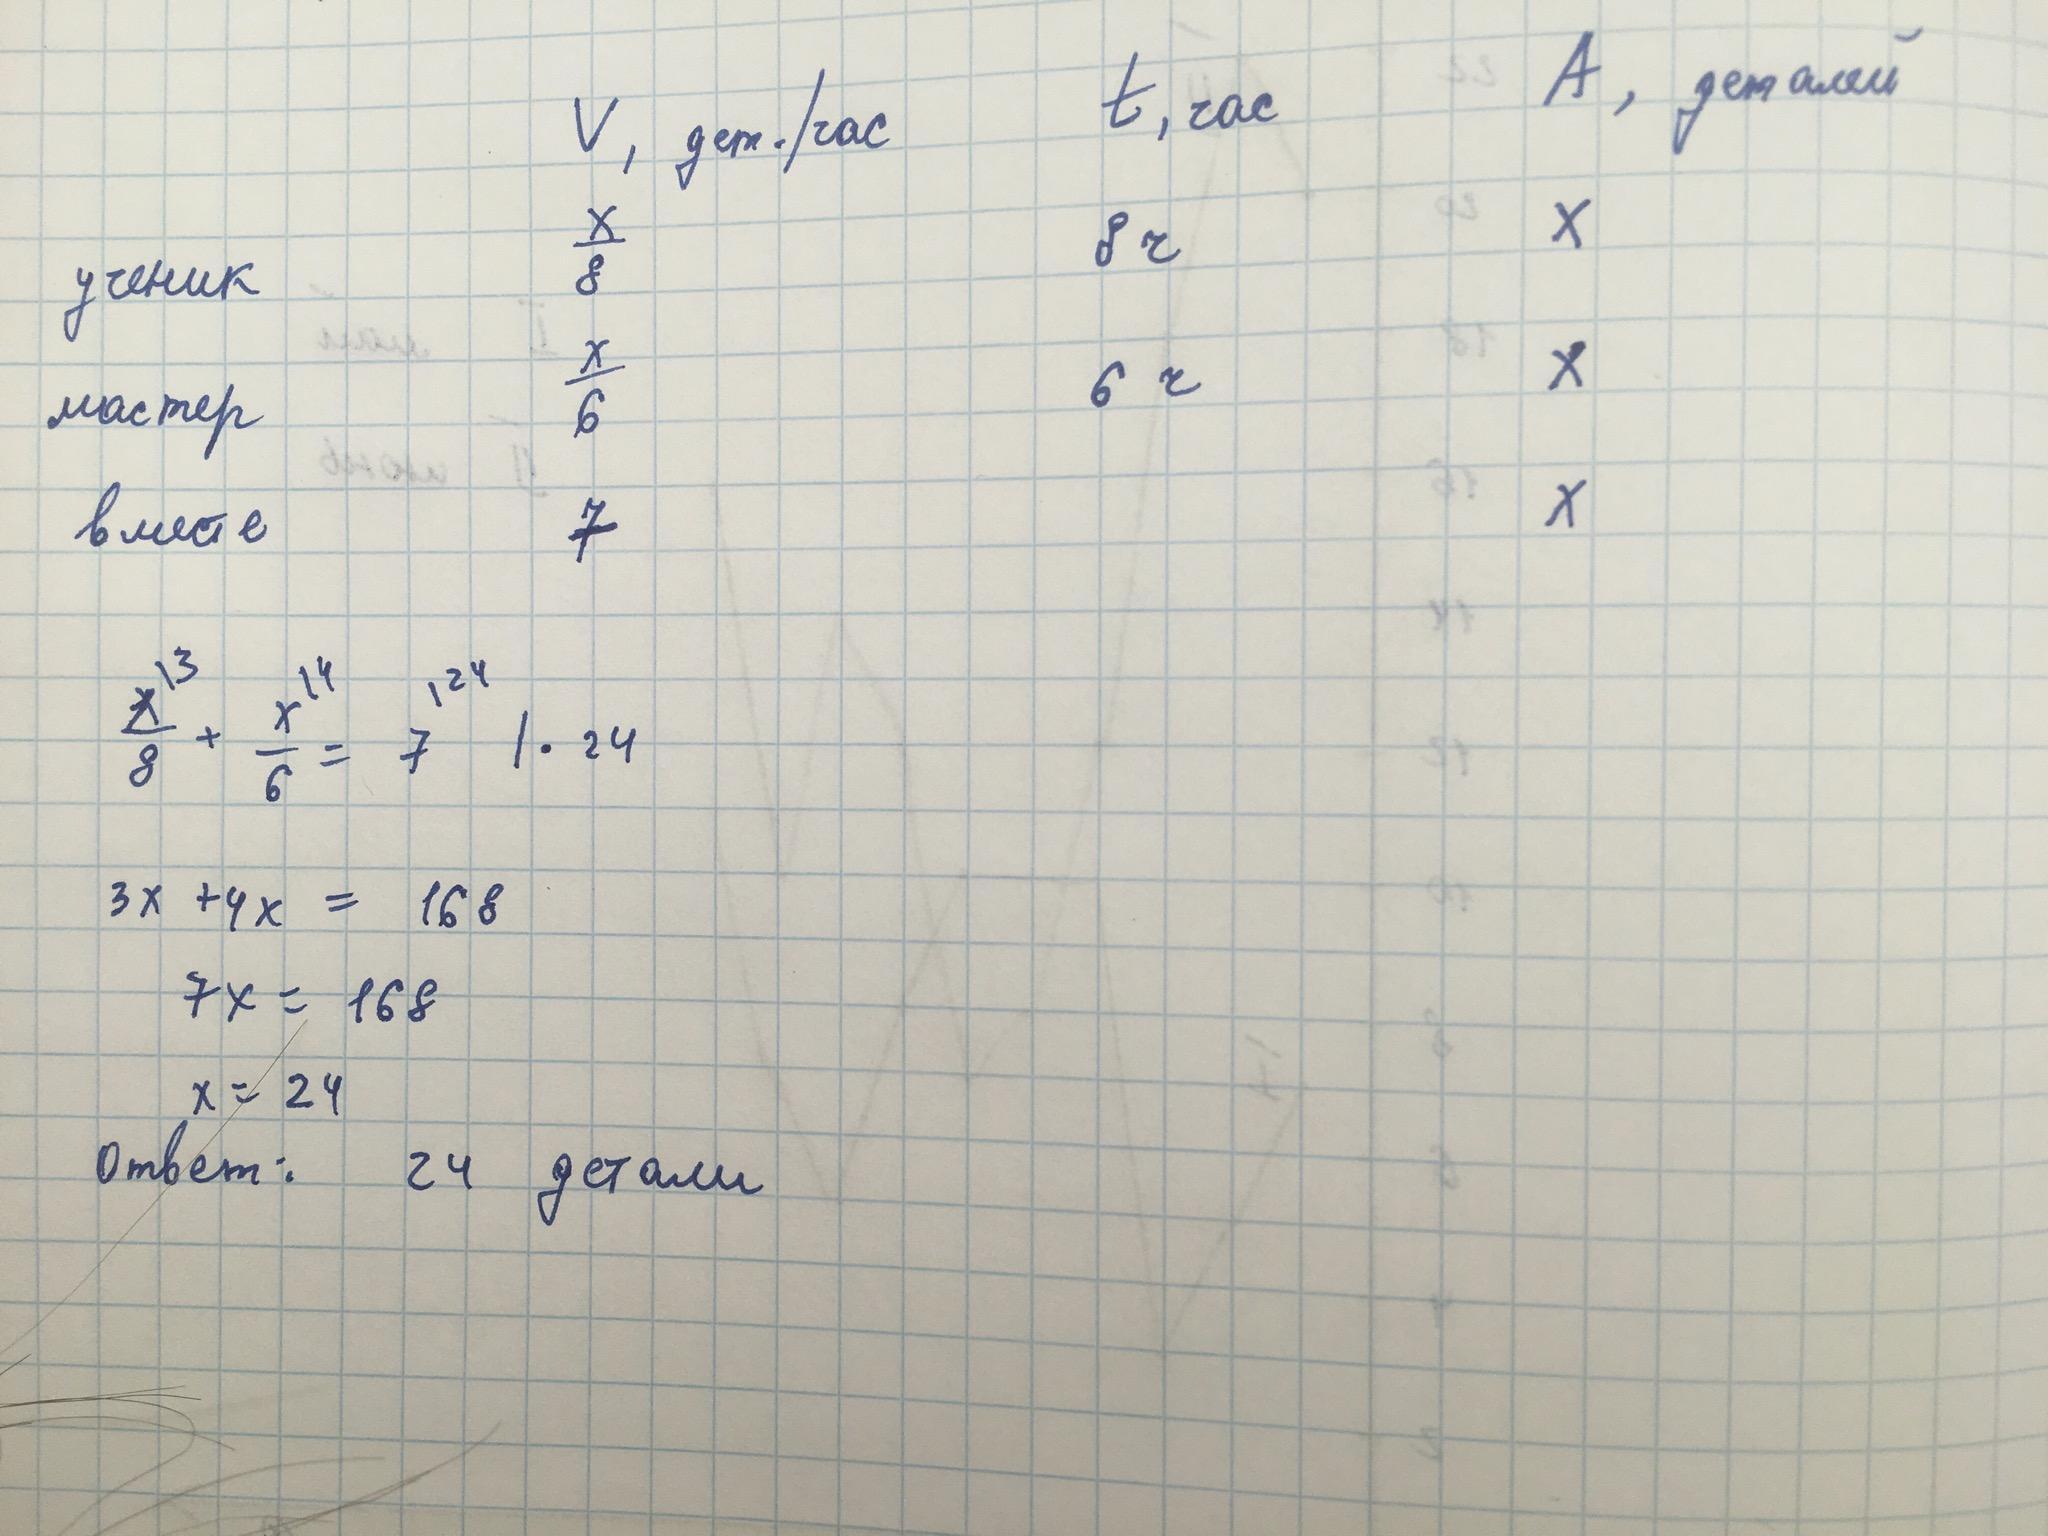 V, дет./час t, час A, деталей
ученик x/8 8 ч x
мастер x/6 6 ч x
вместе 7 x
x\3/8 + x\4/6 = 7\24 | · 24
3x + 4x = 168
7x = 168
x = 24
Ответ: 24 детали